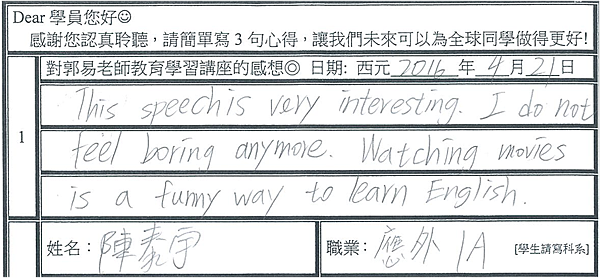 Dear 學員您好☺
感謝您認真聆聽，請簡單寫 3 句心得，讓我們未來可以為全球同學做得更好!
對郭易老師教育學習講座的感想◎ 日期: 西元 2016 年 4 月 21 日
1
This speech is very interesting. I do not
feel boring anymore. Watching movies
is a funny way to learn English.
姓名：陳泰宇 職業：應外 1A [學生請寫科系]